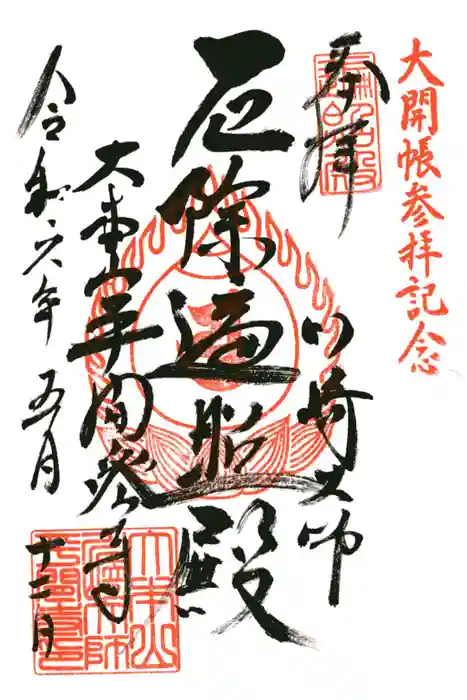 大開帳参拝記念
奉拝
川崎大師
厄除遍照殿
大本山平間寺
令和六年五月
十二日